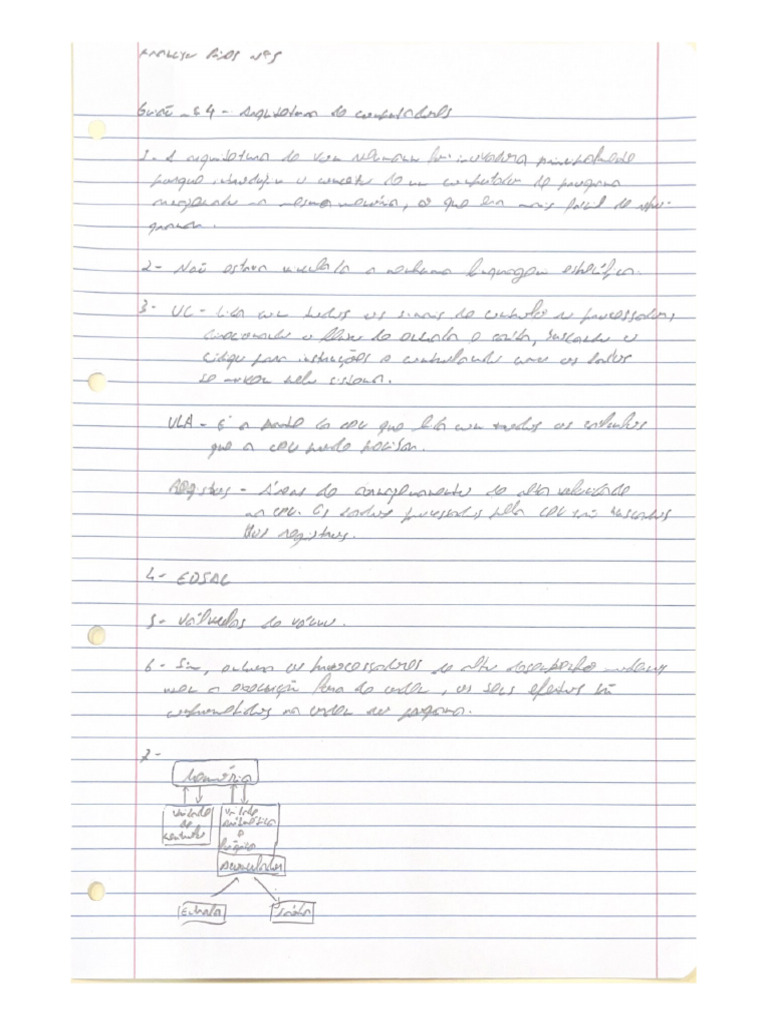 nº5
Guião nº4 - Arquitetura de computadores
1- A arquitetura de Von Neumann foi inovadora principalmente
porque introduziu o conceito de um computador de programa
armazenado na mesma memória, o que era mais fácil de
2- Não estava vinculada a nenhuma linguagem específica.
3- UC - Lida com todos os sinais de controlo do processador,
direcionando o fluxo de entrada e saída, buscando o
código para instruções e controlando como os dados
se movem pelo sistema.
ULA - É a parte da CPU que lida com todos os cálculos
que a CPU pode precisar.
Registos - Áreas de armazenamento de alta velocidade
na CPU. Os dados processados pela CPU são buscados
dos registros.
4- EDSAC
5- Válvulas de vácuo.
6- Sim, embora os processadores de alto desempenho
a execução fora de ordem, os seus efeitos são
na ordem do programa.
7-
Memória
Unidade Unidade
de aritmética
controlo e
lógica
Acumulador
Entrada Saída